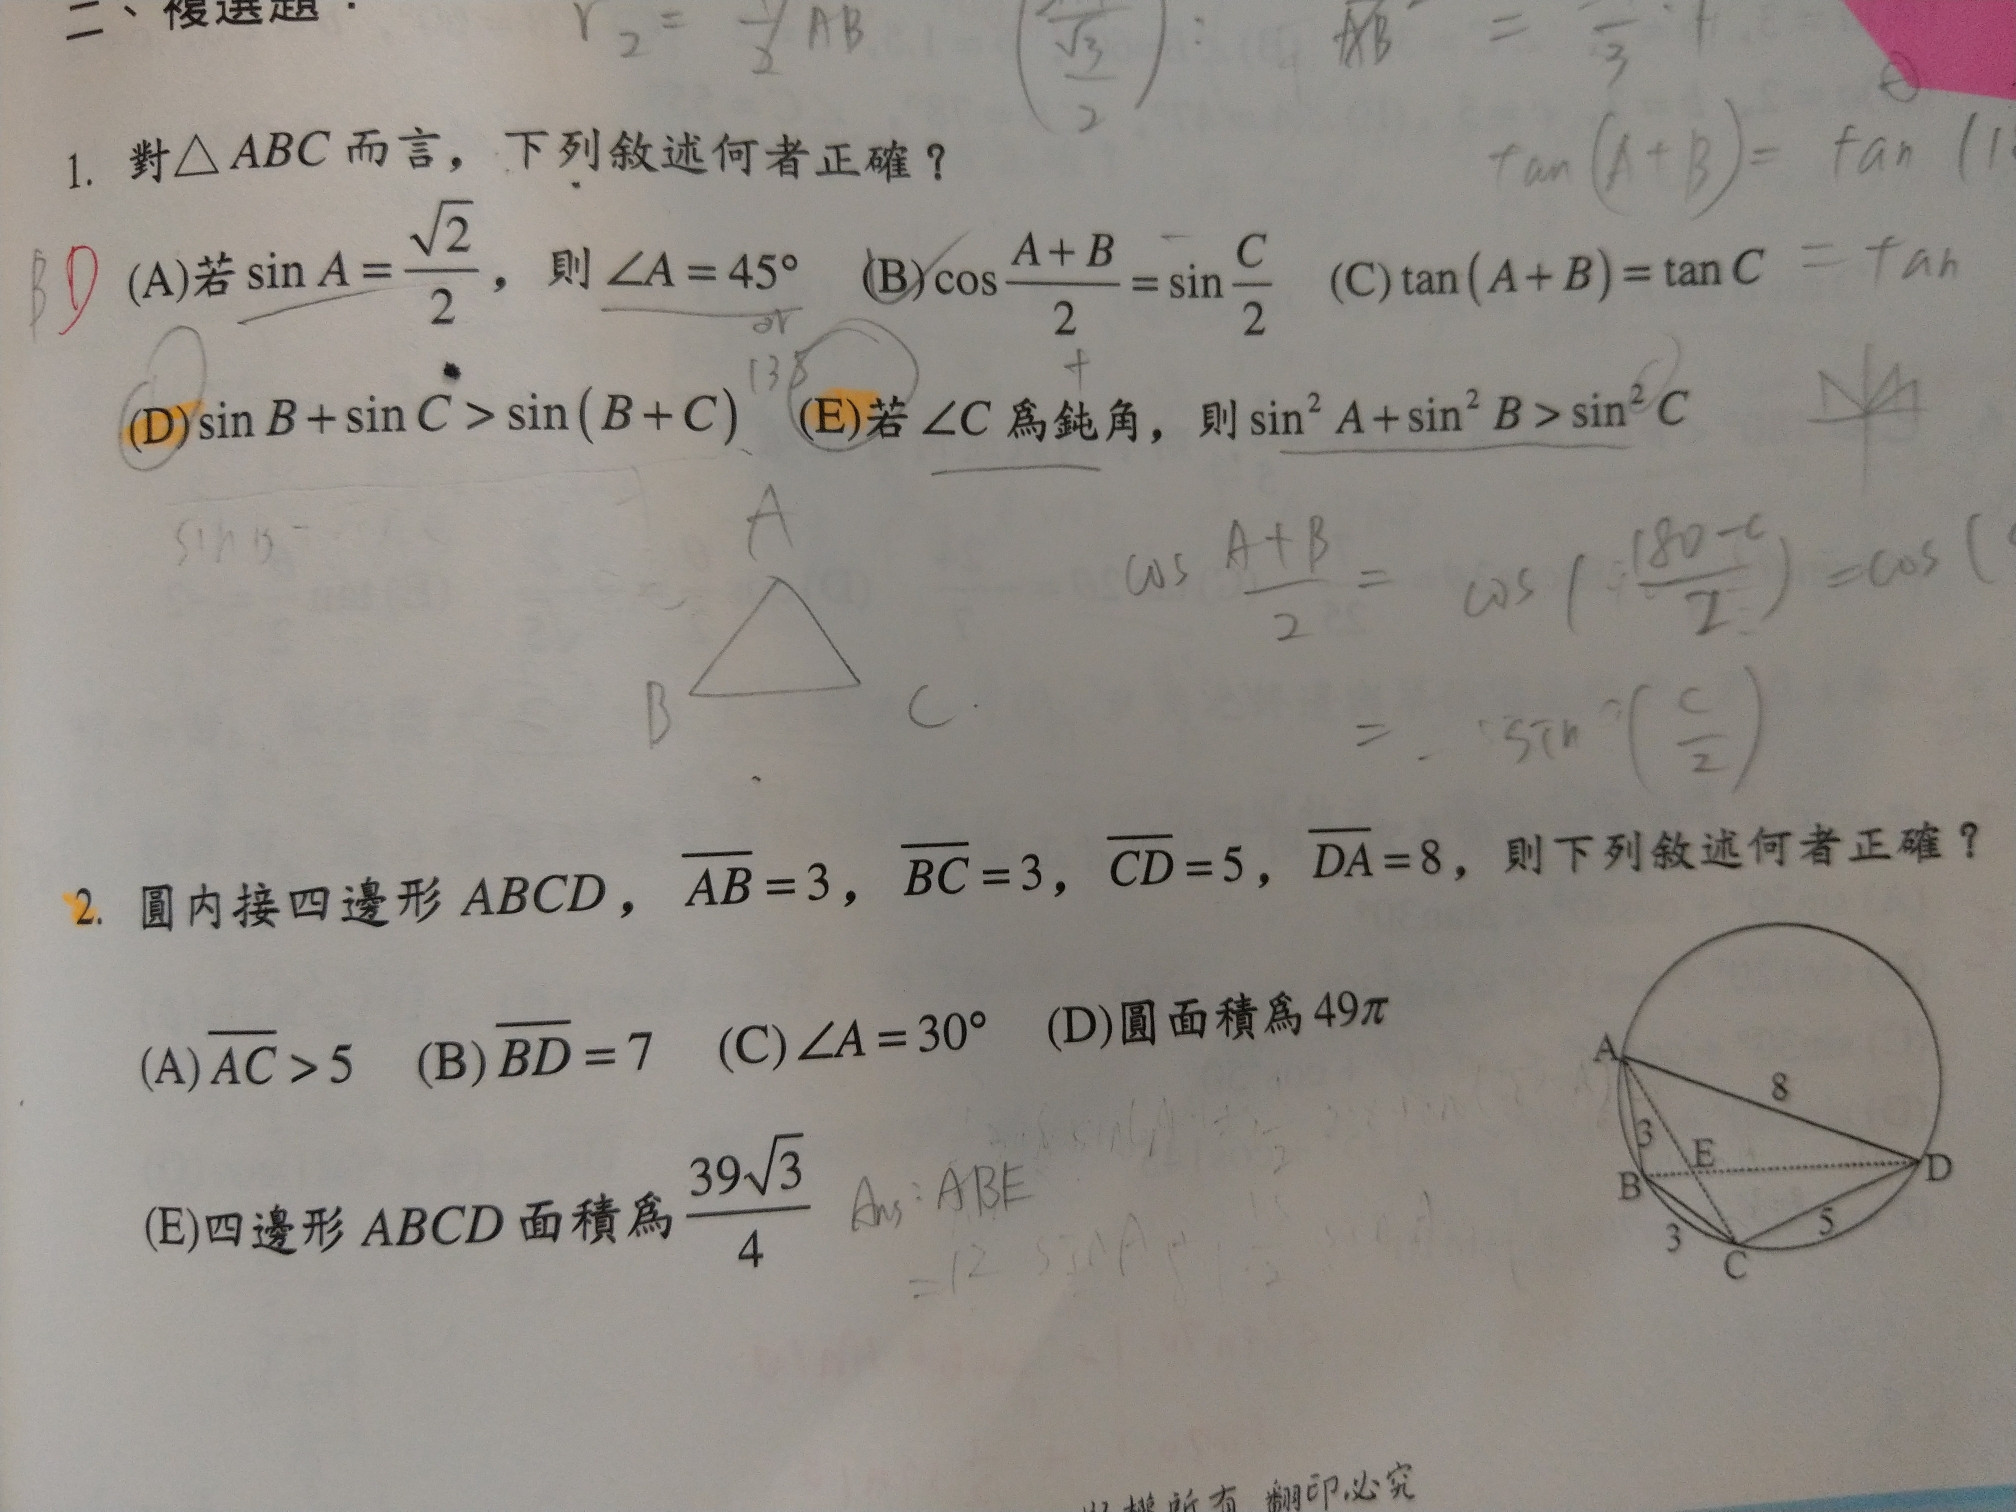 二、複選題：
r₂ = 1/2 AB
AB² =
tan(A+B) = tan
1. 對△ABC 而言，下列敘述何者正確？
BD
(A)若 sin A = √2/2，則 ∠A = 45° (B) cos (A+B)/2 = sin C/2 (C) tan(A+B) = tan C = tan
or
135
(D) sin B + sin C > sin(B+C) (E)若 ∠C 爲鈍角，則 sin² A + sin² B > sin² C
sin B
A
B C
cos (A+B)/2 = cos((180-c)/2) = cos(
= sin(c/2)
2. 圓內接四邊形 ABCD，AB = 3，BC = 3，CD = 5，DA = 8，則下列敘述何者正確？
(A) AC > 5 (B) BD = 7 (C) ∠A = 30° (D)圓面積爲 49π
(E)四邊形 ABCD 面積爲 39√3/4 Ans: ABE
= 12 sin A
A
8
3
E
B
D
3
5
C
版權所有 翻印必究